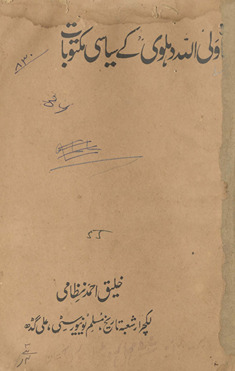 ولی اللہ دہلوی کے سیاسی مکتوبات
۸۳۰
خلیق احمد نظامی
لکچرار شعبۂ تاریخ، مسلم یونیورسٹی، علی گڈھ